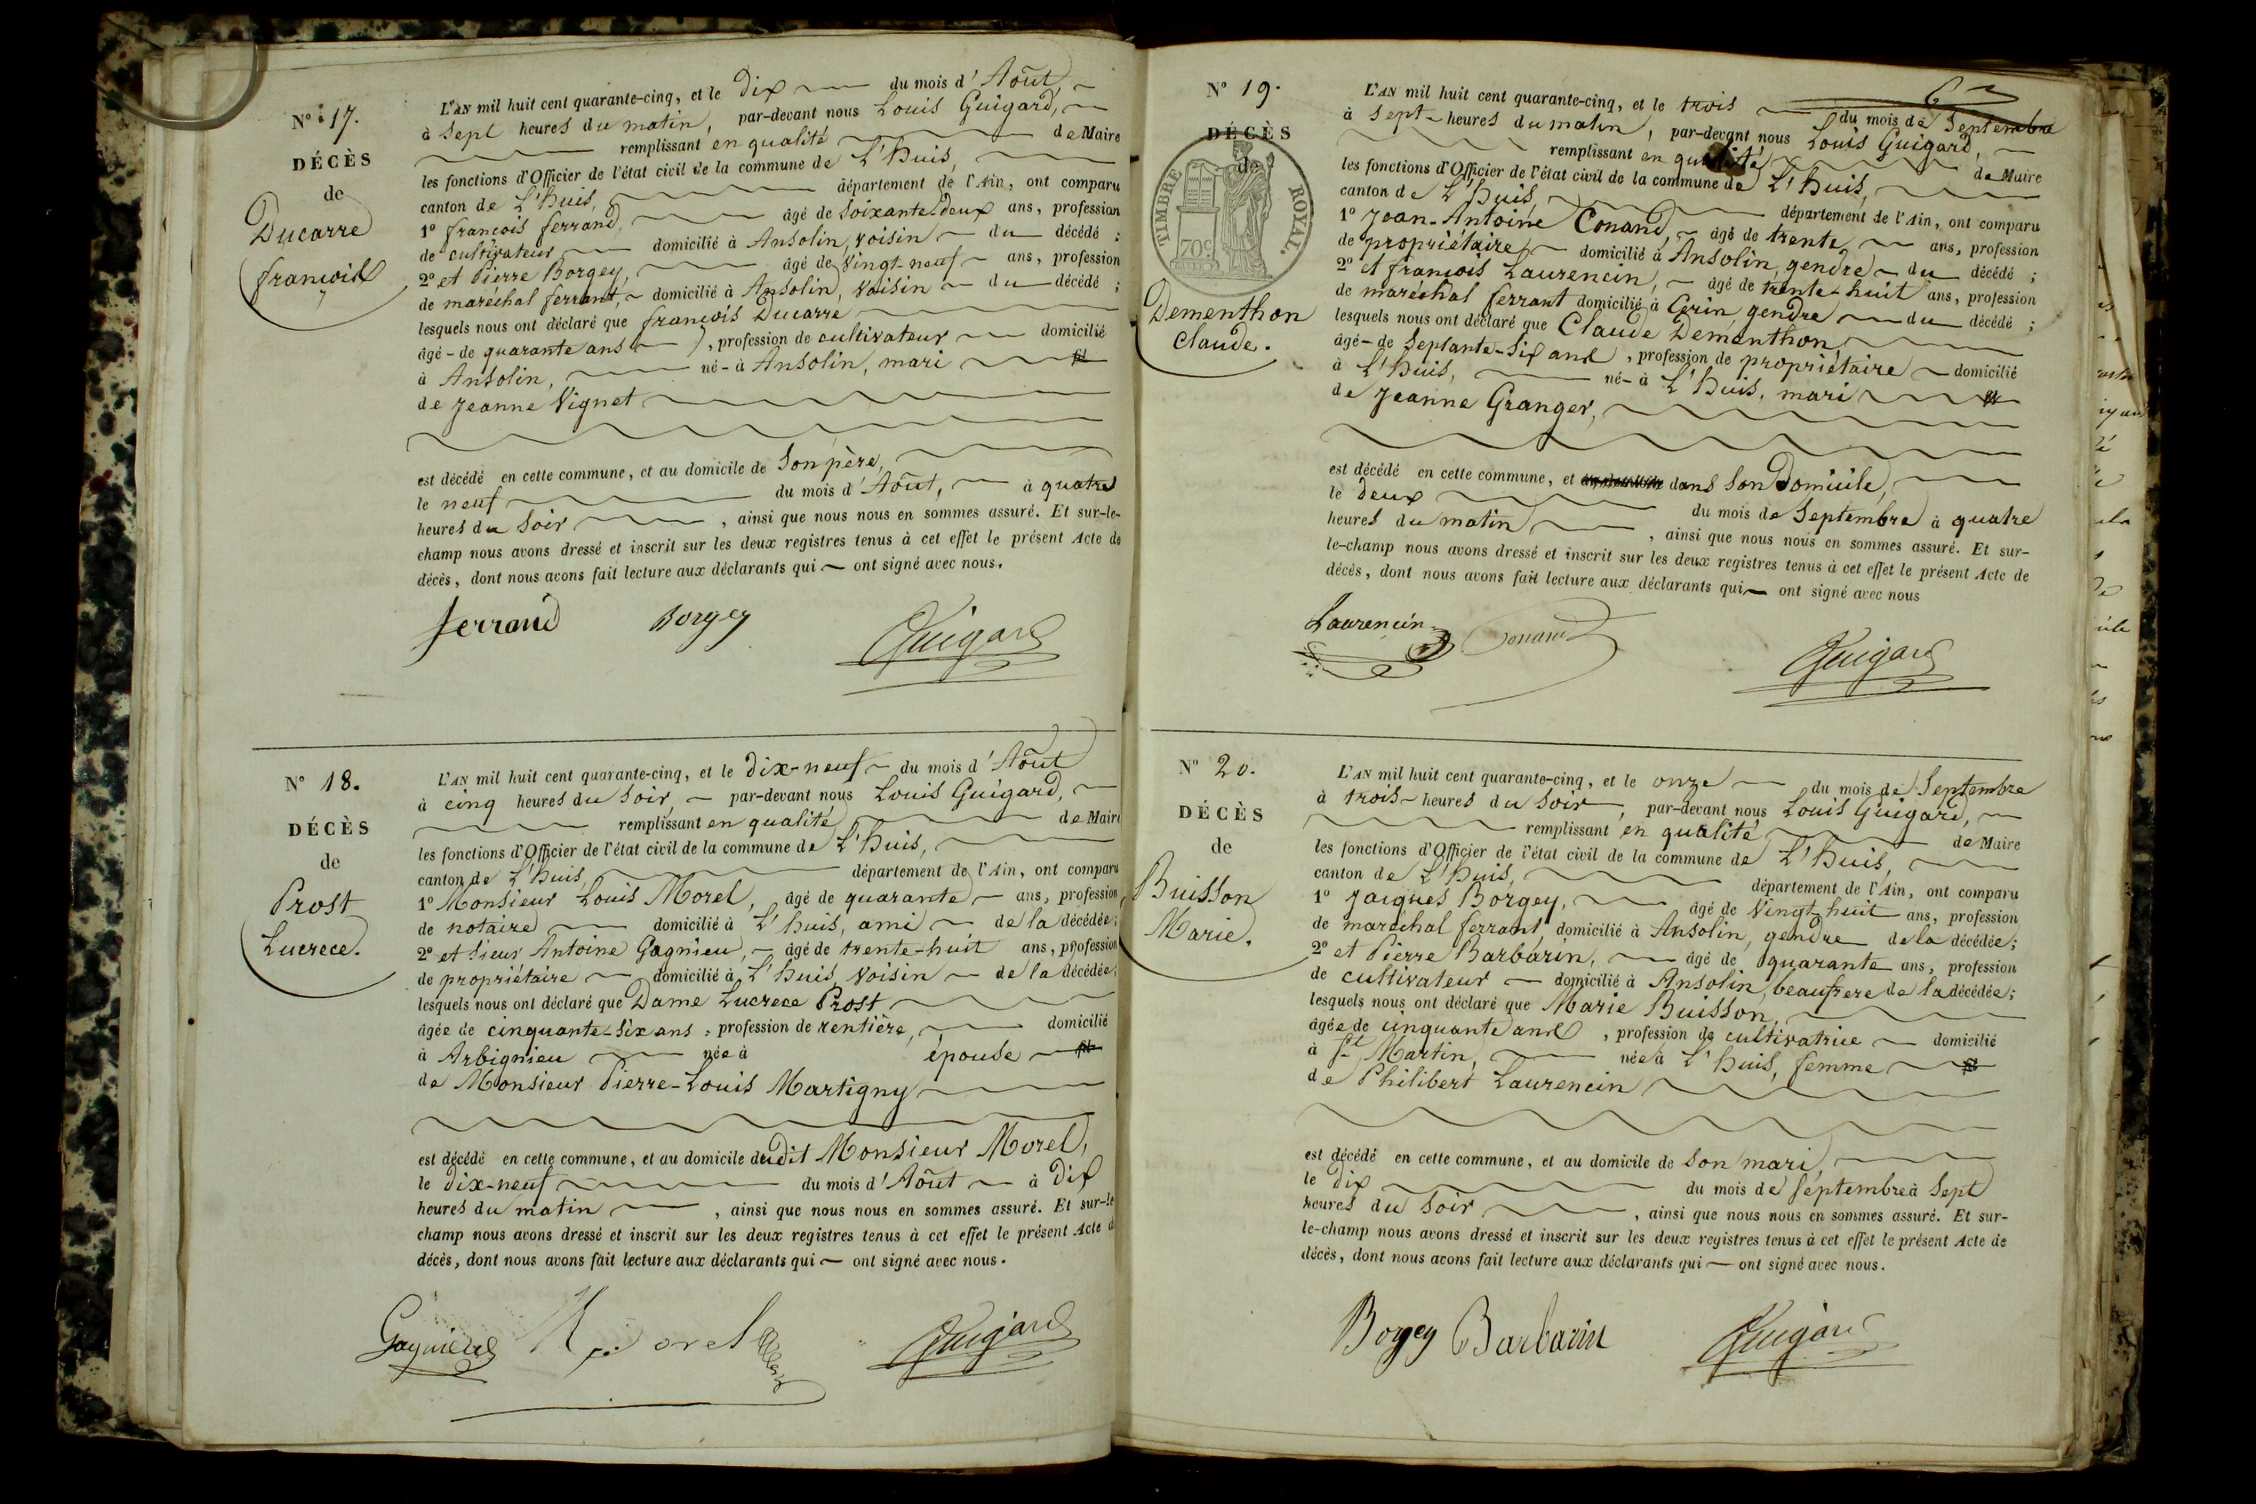 N° 17.
DÉCÈS
de
Ducarre
françois
L'AN mil huit cent quarante-cinq, et le Dix du mois d'Août,
à sept heures du matin, par-devant nous Louis Guigard,
remplissant en qualité de Maire
les fonctions d'Officier de l'état civil de la commune de L'huis,
canton de L'huis, département de l'Ain, ont comparu
1° françois ferrand, âgé de soixante-deux ans, profession
de cultivateur domicilié à Ansolin, voisin du décédé ;
2° et Pierre Borgey, âgé de vingt-neuf ans, profession
de maréchal ferrant, domicilié à Ansolin, voisin du décédé ;
lesquels nous ont déclaré que françois Ducarre
âgé de quarante ans, profession de cultivateur domicilié
à Ansolin, né à Ansolin, mari
de Jeanne Vignet
est décédé en cette commune, et au domicile de son père,
le neuf du mois d'Août, à quatre
heures du soir, ainsi que nous nous en sommes assuré. Et sur-le-
champ nous avons dressé et inscrit sur les deux registres tenus à cet effet le présent Acte de
décès, dont nous avons fait lecture aux déclarants qui ont signé avec nous.
ferrand Borgey Guigard
N° 18.
DÉCÈS
de
Prost
Lucrece.
L'AN mil huit cent quarante-cinq, et le dix-neuf du mois d'Août
à cinq heures du soir, par-devant nous Louis Guigard,
remplissant en qualité de Maire
les fonctions d'Officier de l'état civil de la commune de L'huis,
canton de L'huis, département de l'Ain, ont comparu
1° Monsieur Louis Morel, âgé de quarante ans, profession
de notaire domicilié à L'huis, ami de la décédée ;
2° et sieur Antoine Gagnieu, âgé de trente-huit ans, profession
de propriétaire domicilié à L'huis, voisin de la décédée ;
lesquels nous ont déclaré que Dame Lucrece Prost
âgée de cinquante-six ans, profession de rentière, domicilié
à Arbignieu née à épouse
de Monsieur Pierre-Louis Martigny
est décédé en cette commune, et au domicile dudit Monsieur Morel,
le dix-neuf du mois d'Août à dix
heures du matin, ainsi que nous nous en sommes assuré. Et sur-le
champ nous avons dressé et inscrit sur les deux registres tenus à cet effet le présent Acte d
décès, dont nous avons fait lecture aux déclarants qui ont signé avec nous.
Gagnieu Morel Guigard
N° 19.
DÉCÈS
de
TIMBRE ROYAL.
70c
Dementhon
Claude.
L'AN mil huit cent quarante-cinq, et le trois du mois de Septembre
à sept heures du matin, par-devant nous Louis Guigard,
remplissant en qualité de Maire
les fonctions d'Officier de l'état civil de la commune de L'huis,
canton de L'huis, département de l'Ain, ont comparu
1° Jean-Antoine Conand, âgé de trente ans, profession
de propriétaire domicilié à Ansolin, gendre du décédé ;
2° et françois Laurencin, âgé de trente-huit ans, profession
de maréchal ferrant domicilié à Cerin, gendre du décédé ;
lesquels nous ont déclaré que Claude Dementhon,
âgé de septante-six ans, profession de propriétaire domicilié
à L'huis, né à L'huis, mari
de Jeanne Granger,
est décédé en cette commune, et dans son Domicile,
le deux du mois de Septembre à quatre
heures du matin, ainsi que nous nous en sommes assuré. Et sur-
le-champ nous avons dressé et inscrit sur les deux registres tenus à cet effet le présent Acte de
décès, dont nous avons fait lecture aux déclarants qui ont signé avec nous
Laurencin Conand Guigard
N° 20.
DÉCÈS
de
Buisson
Marie.
L'AN mil huit cent quarante-cinq, et le onze du mois de Septembre
à trois heures du soir, par-devant nous Louis Guigard,
remplissant en qualité de Maire
les fonctions d'Officier de l'état civil de la commune de L'huis,
canton de L'huis, département de l'Ain, ont comparu
1° Jacques Borgey, âgé de vingt-huit ans, profession
de maréchal ferrant, domicilié à Ansolin, gendre de la décédée ;
2° et Pierre Barbarin, âgé de quarante ans, profession
de cultivateur domicilié à Ansolin, beaufrere de la décédée ;
lesquels nous ont déclaré que Marie Buisson,
âgée de cinquante ans, profession de cultivatrice domicilié
à St Martin, née à L'huis, femme
de Philibert Laurencin
est décédé en cette commune, et au domicile de son mari,
le dix du mois de septembre à sept
heures du soir, ainsi que nous nous en sommes assuré. Et sur-
le-champ nous avons dressé et inscrit sur les deux registres tenus à cet effet le présent Acte de
décès, dont nous avons fait lecture aux déclarants qui ont signé avec nous.
Borgey Barbarin Guigard